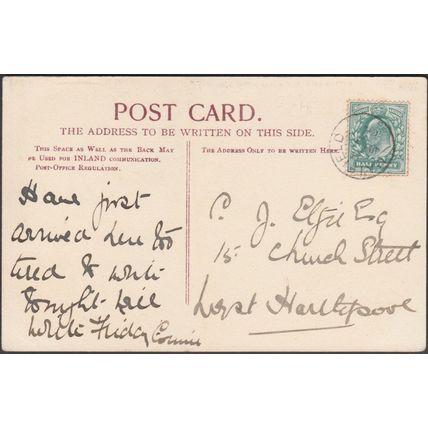 POST CARD.
THE ADDRESS TO BE WRITTEN ON THIS SIDE.
THIS SPACE AS WELL AS THE BACK MAY
BE USED FOR INLAND COMMUNICATION.
POST-OFFICE REGULATION.
THE ADDRESS ONLY TO BE WRITTEN HERE.
HALF PENNY
Have just
arrived here too
tired to write
tonight will
write Friday Connie
C. J. Elgie Esq
15 Church Street
West Hartlepool